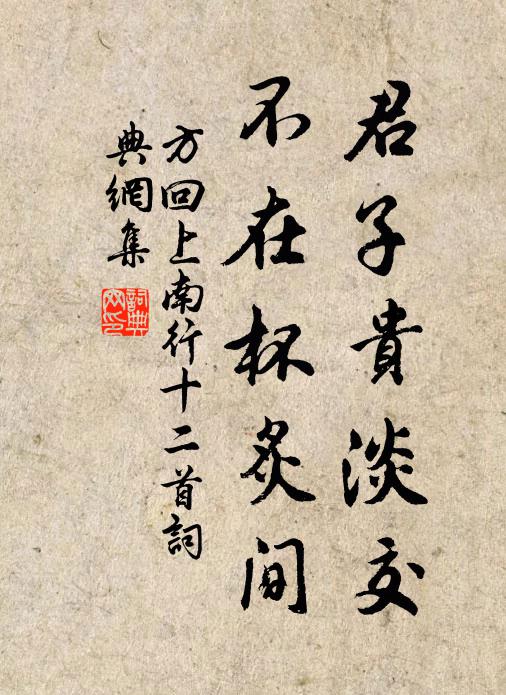 君子貴淡交
不在杯炙間
方回上南行十二首詞
典網集
詞典網印